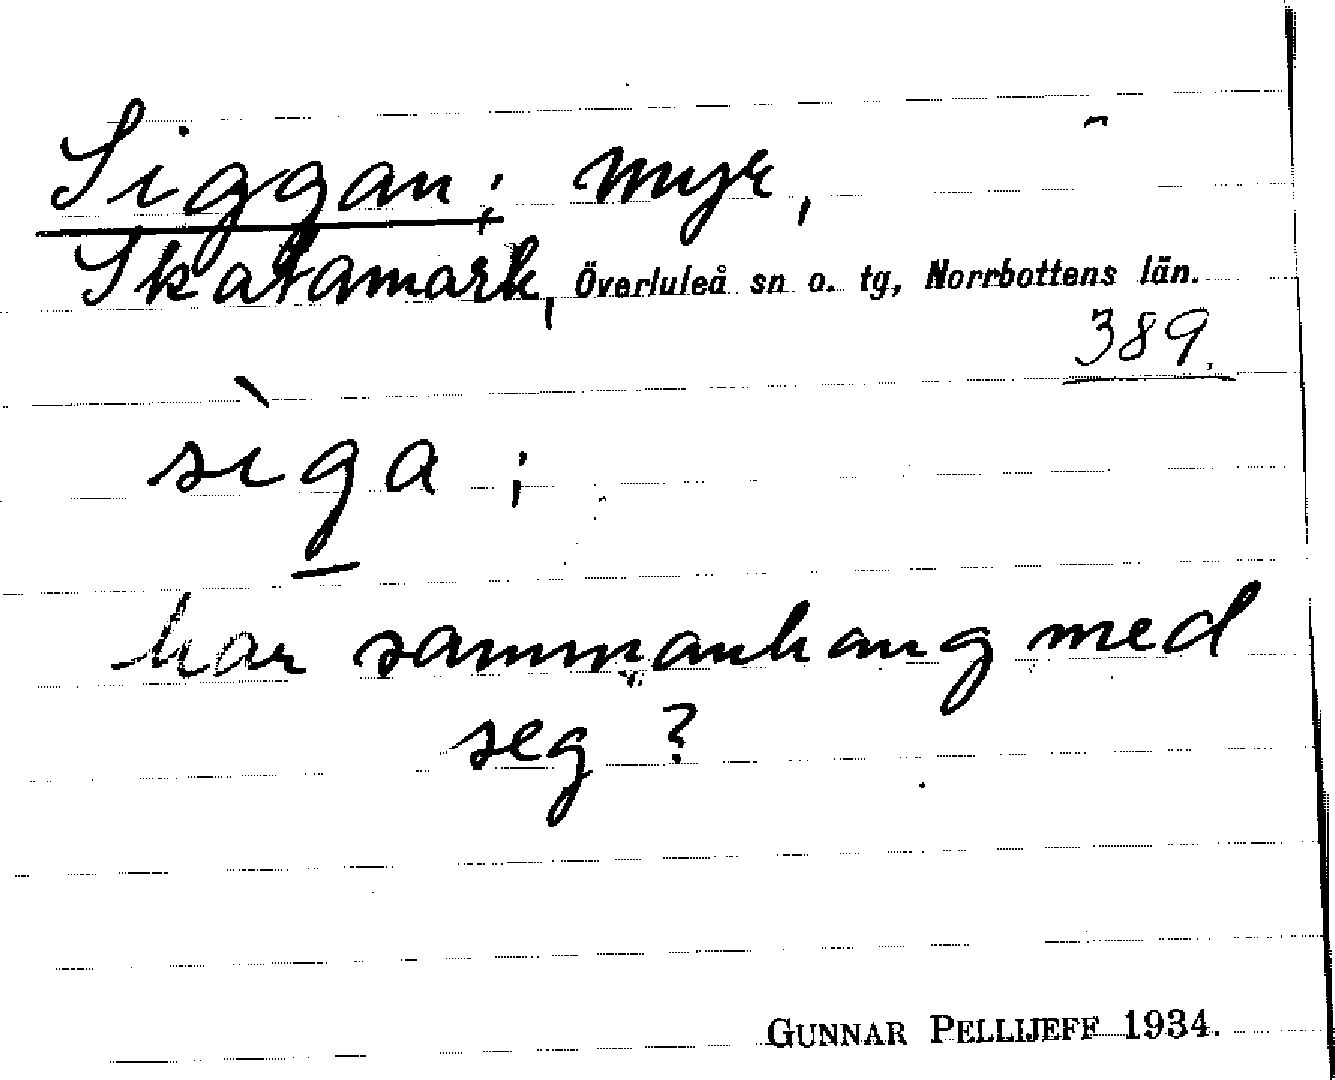 Siggan; myr,
Skatamark, Överluleå sn o. tg, Norrbottens län.
389.
sìga;
har sammanhang med
seg?
GUNNAR PELLIJEFF 1934.